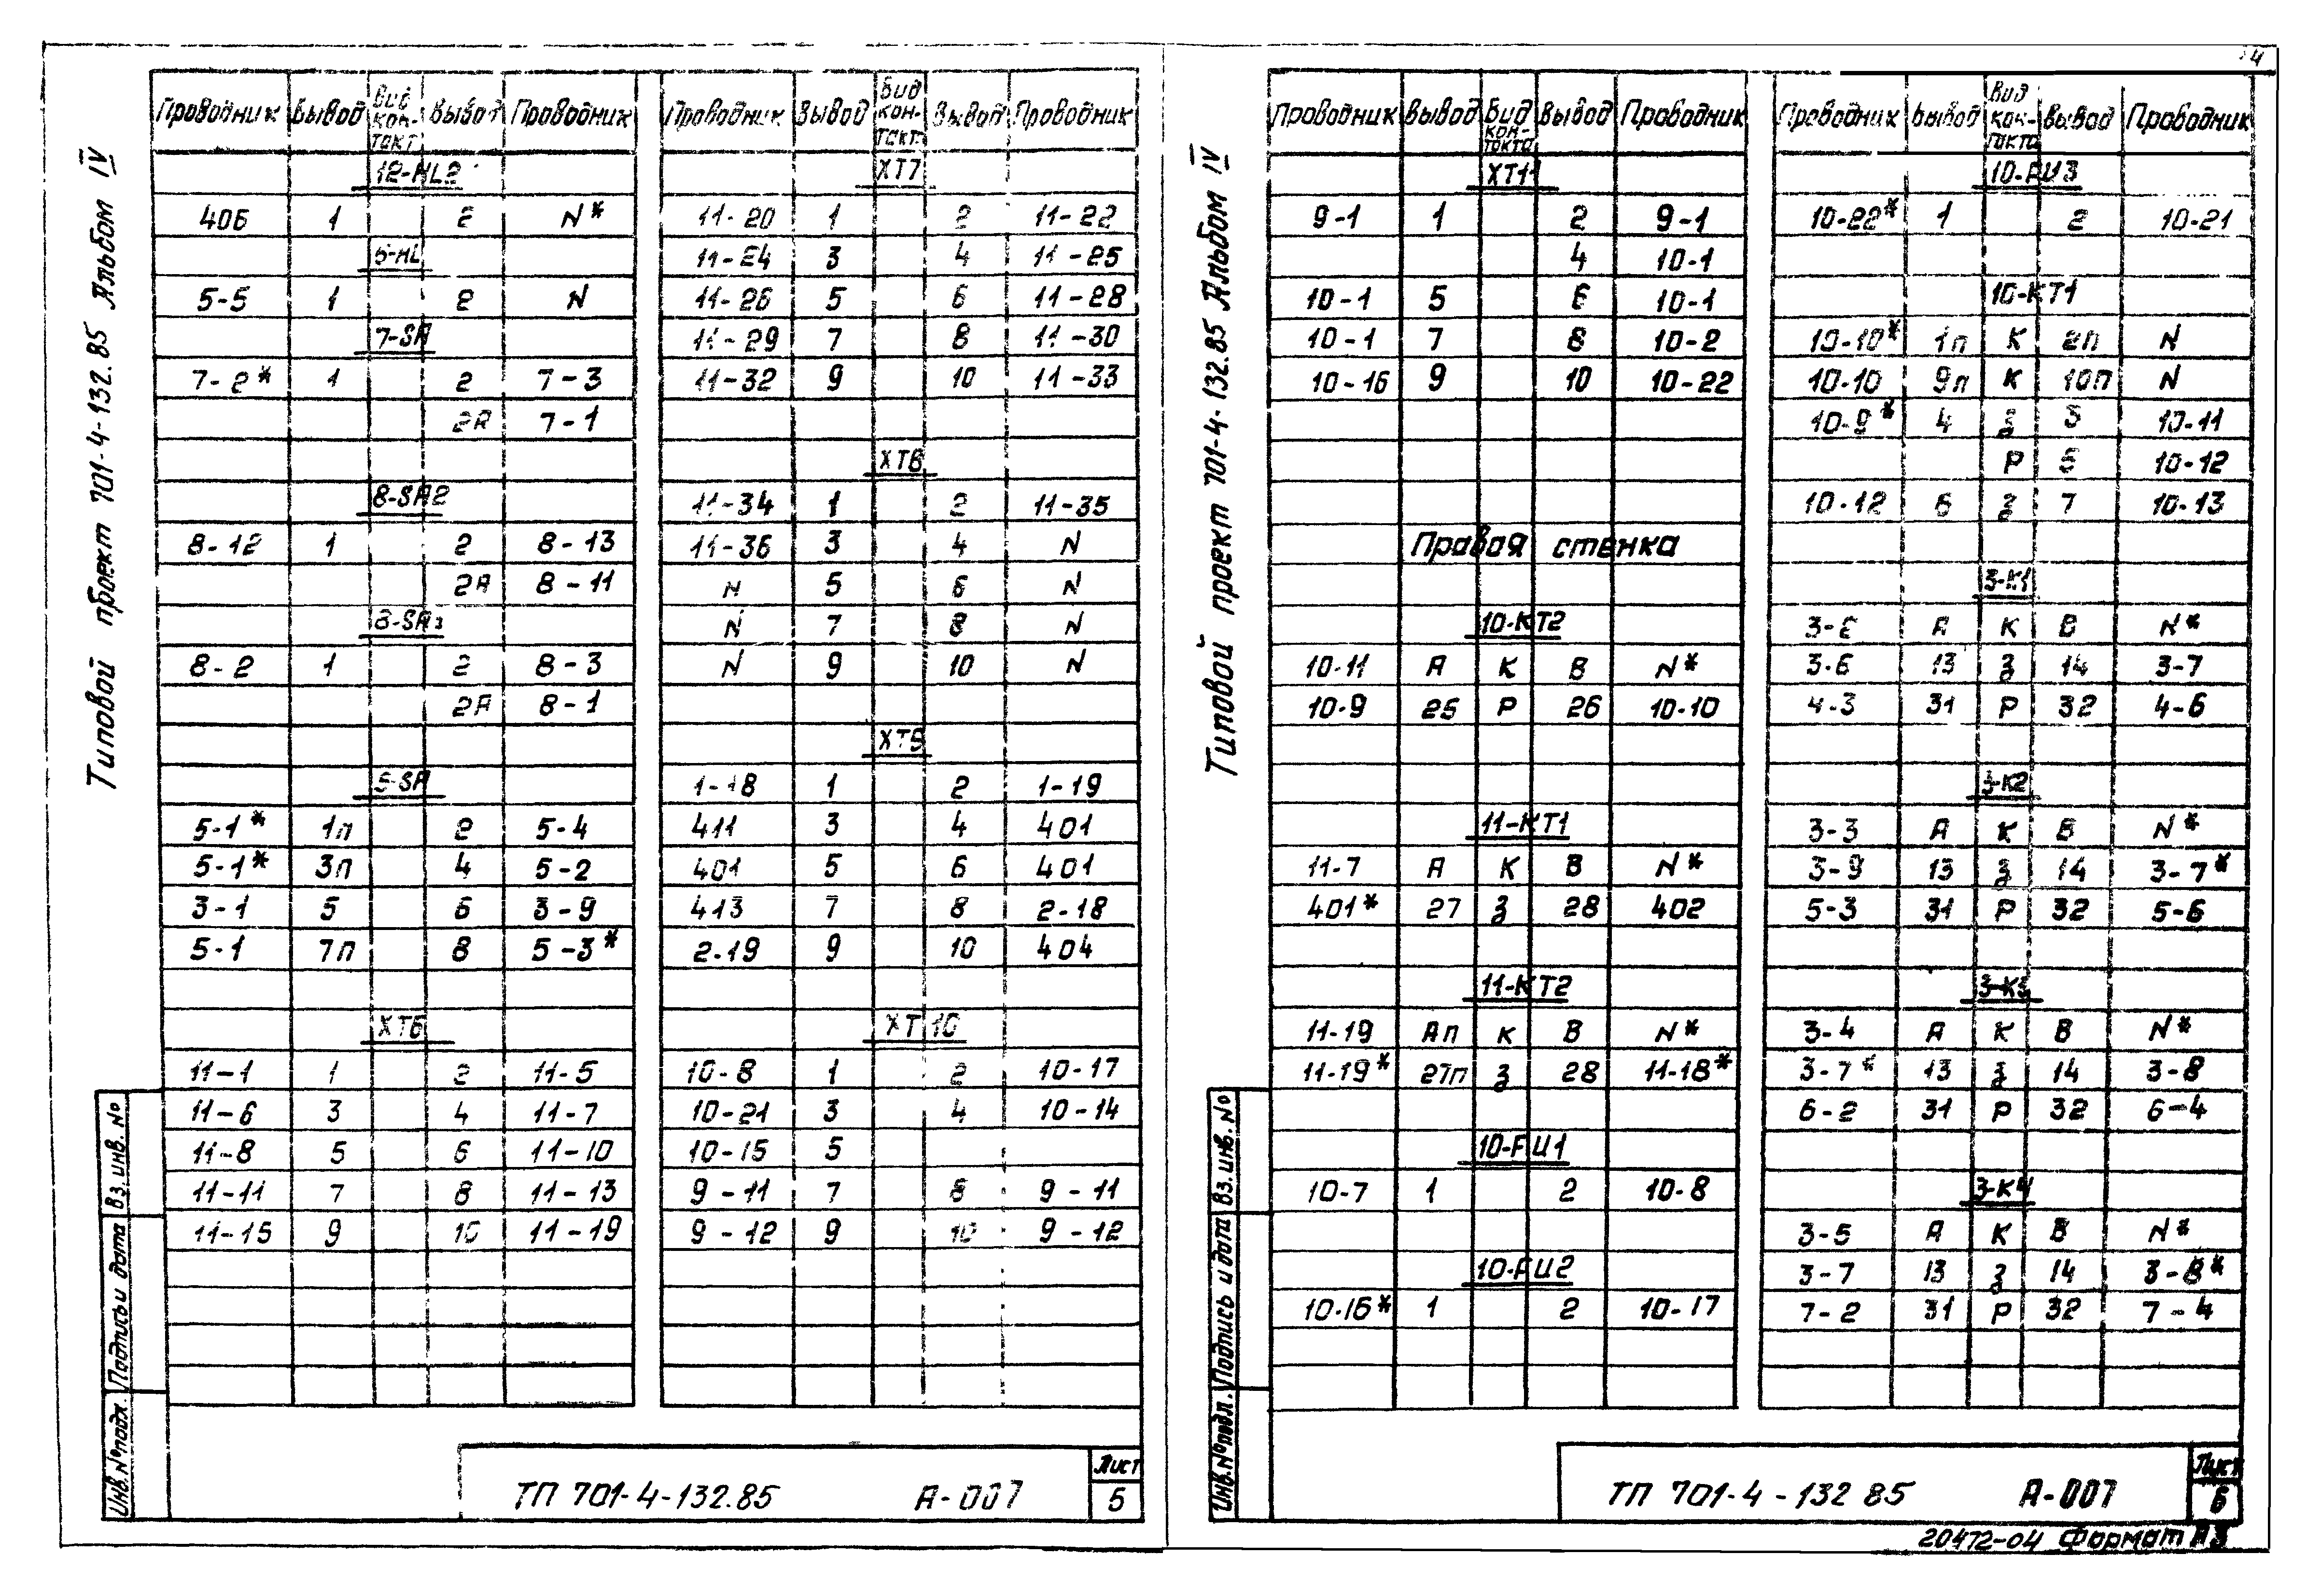 Типовой проект 701-4-132.85 Альбом IV
Проводник Вывод Вид кон-такт Вывод Проводник
12-HL2
406 1 2 N*
5-HL
5-5 1 2 N
7-SA
7-2* 1 2 7-3
2A 7-1
8-SA2
8-12 1 2 8-13
2A 8-11
8-SA3
8-2 1 2 8-3
2A 8-1
5-SA
5-1* 1п 2 5-4
5-1* 3п 4 5-2
3-1 5 6 3-9
5-1 7п 8 5-3*
XT6
11-1 1 2 11-5
11-6 3 4 11-7
11-8 5 6 11-10
11-11 7 8 11-13
11-15 9 10 11-19
Проводник Вывод Вид кон-такт. Вывод Проводник
XT7
11-20 1 2 11-22
11-24 3 4 11-25
11-26 5 6 11-28
11-29 7 8 11-30
11-32 9 10 11-33
11-34 1 2 11-35
11-36 3 4 N
N 5 6 N
N 7 8 N
N 9 10 N
1-18 1 2 1-19
411 3 4 401
401 5 6 401
413 7 8 2-18
2-19 9 10 404
XT10
10-8 1 2 10-17
10-21 3 4 10-14
10-15 5
9-11 7 8 9-11
9-12 9 10 9-12
Инв.№подл. Подпись и дата Вз.инв.№
ТП 701-4-132.85 А-007
Лист
5
4
Типовой проект 701-4-132.85 Альбом IV
Проводник Вывод Вид кон-такта Вывод Проводник
XT11
9-1 1 2 9-1
4 10-1
10-1 5 6 10-1
10-1 7 8 10-2
10-16 9 10 10-22
Правая стенка
10-KT2
10-11 A К B N*
10-9 25 Р 26 10-10
11-KT1
11-7 A К B N*
401* 27 З 28 402
11-KT2
11-19 Aп К B N*
11-19* 27п З 28 11-18*
10-FU1
10-7 1 2 10-8
10-FU2
10-16* 1 2 10-17
Проводник Вывод Вид кон-такта Вывод Проводник
10-FU3
10-22* 1 2 10-21
10-KT1
10-10* 1п К 2п N
10-10 9п К 10п N
10-9* 4 З 3 10-11
Р 5 10-12
10-12 6 З 7 10-13
3-K1
3-2 A К B N*
3-6 13 З 14 3-7
4-3 31 Р 32 4-6
3-K2
3-3 A К B N*
3-9 13 З 14 3-7*
5-3 31 Р 32 5-6
3-K3
3-4 A К B N*
3-7* 13 З 14 3-8
6-2 31 Р 32 6-4
3-K4
3-5 A К B N*
3-7 13 З 14 3-8*
7-2 31 Р 32 7-4
Инв.№подл. Подпись и дата Вз.инв.№
ТП 701-4-132 85 А-007
Лист
6
20472-04 Формат А3